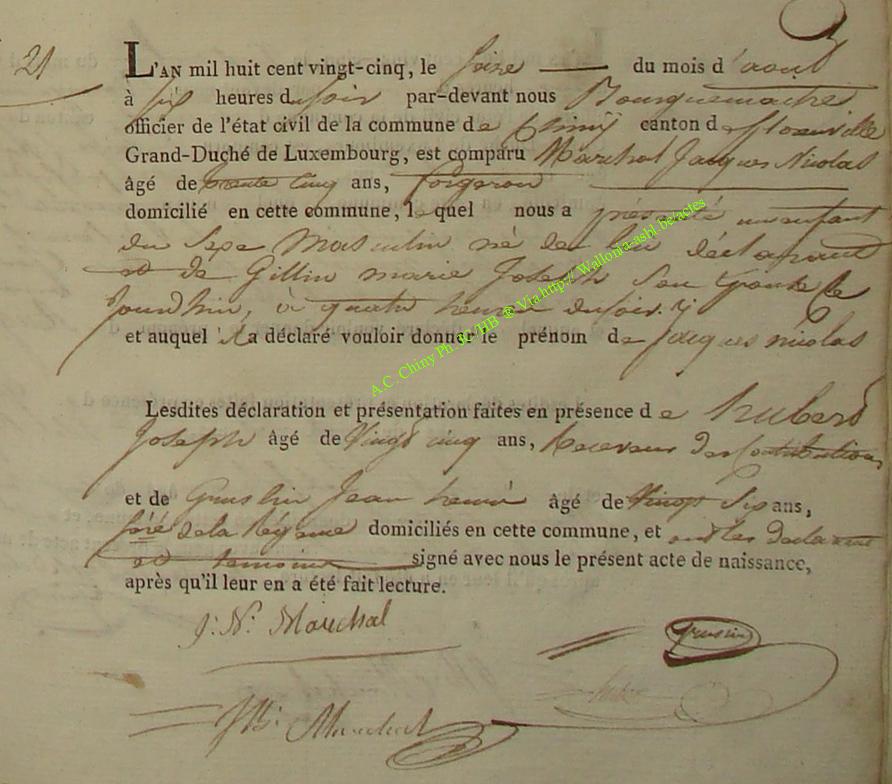 21
L'AN mil huit cent vingt-cinq, le seize du mois d'aout
à six heures du soir par-devant nous Bourguemaitre
officier de l'état civil de la commune de Chiny canton de florenville
Grand-Duché de Luxembourg, est comparu Maréchal Jacques Nicolas
âgé de trente cinq ans, forgeron
domicilié en cette commune, lequel nous a présenté un enfant
du sexe Masculin né de lui déclarant
et de Gillin marie Joseph son épouse ce
jourd'hui, à quatre heures du soir
et auquel il a déclaré vouloir donner le prénom de jacques nicolas
Lesdites déclaration et présentation faites en présence de hubert
Joseph âgé de vingt cinq ans, Receveur des Contributions
et de Jean henri âgé de vingt six ans,
de la domiciliés en cette commune, et ont les déclarant
et temoins signé avec nous le présent acte de naissance,
après qu'il leur en a été fait lecture.
J: N: Maréchal
Maréchal
A.C. Chiny Ph. JL/HB ® Via.http:// Wallonia-asbl.be:actes